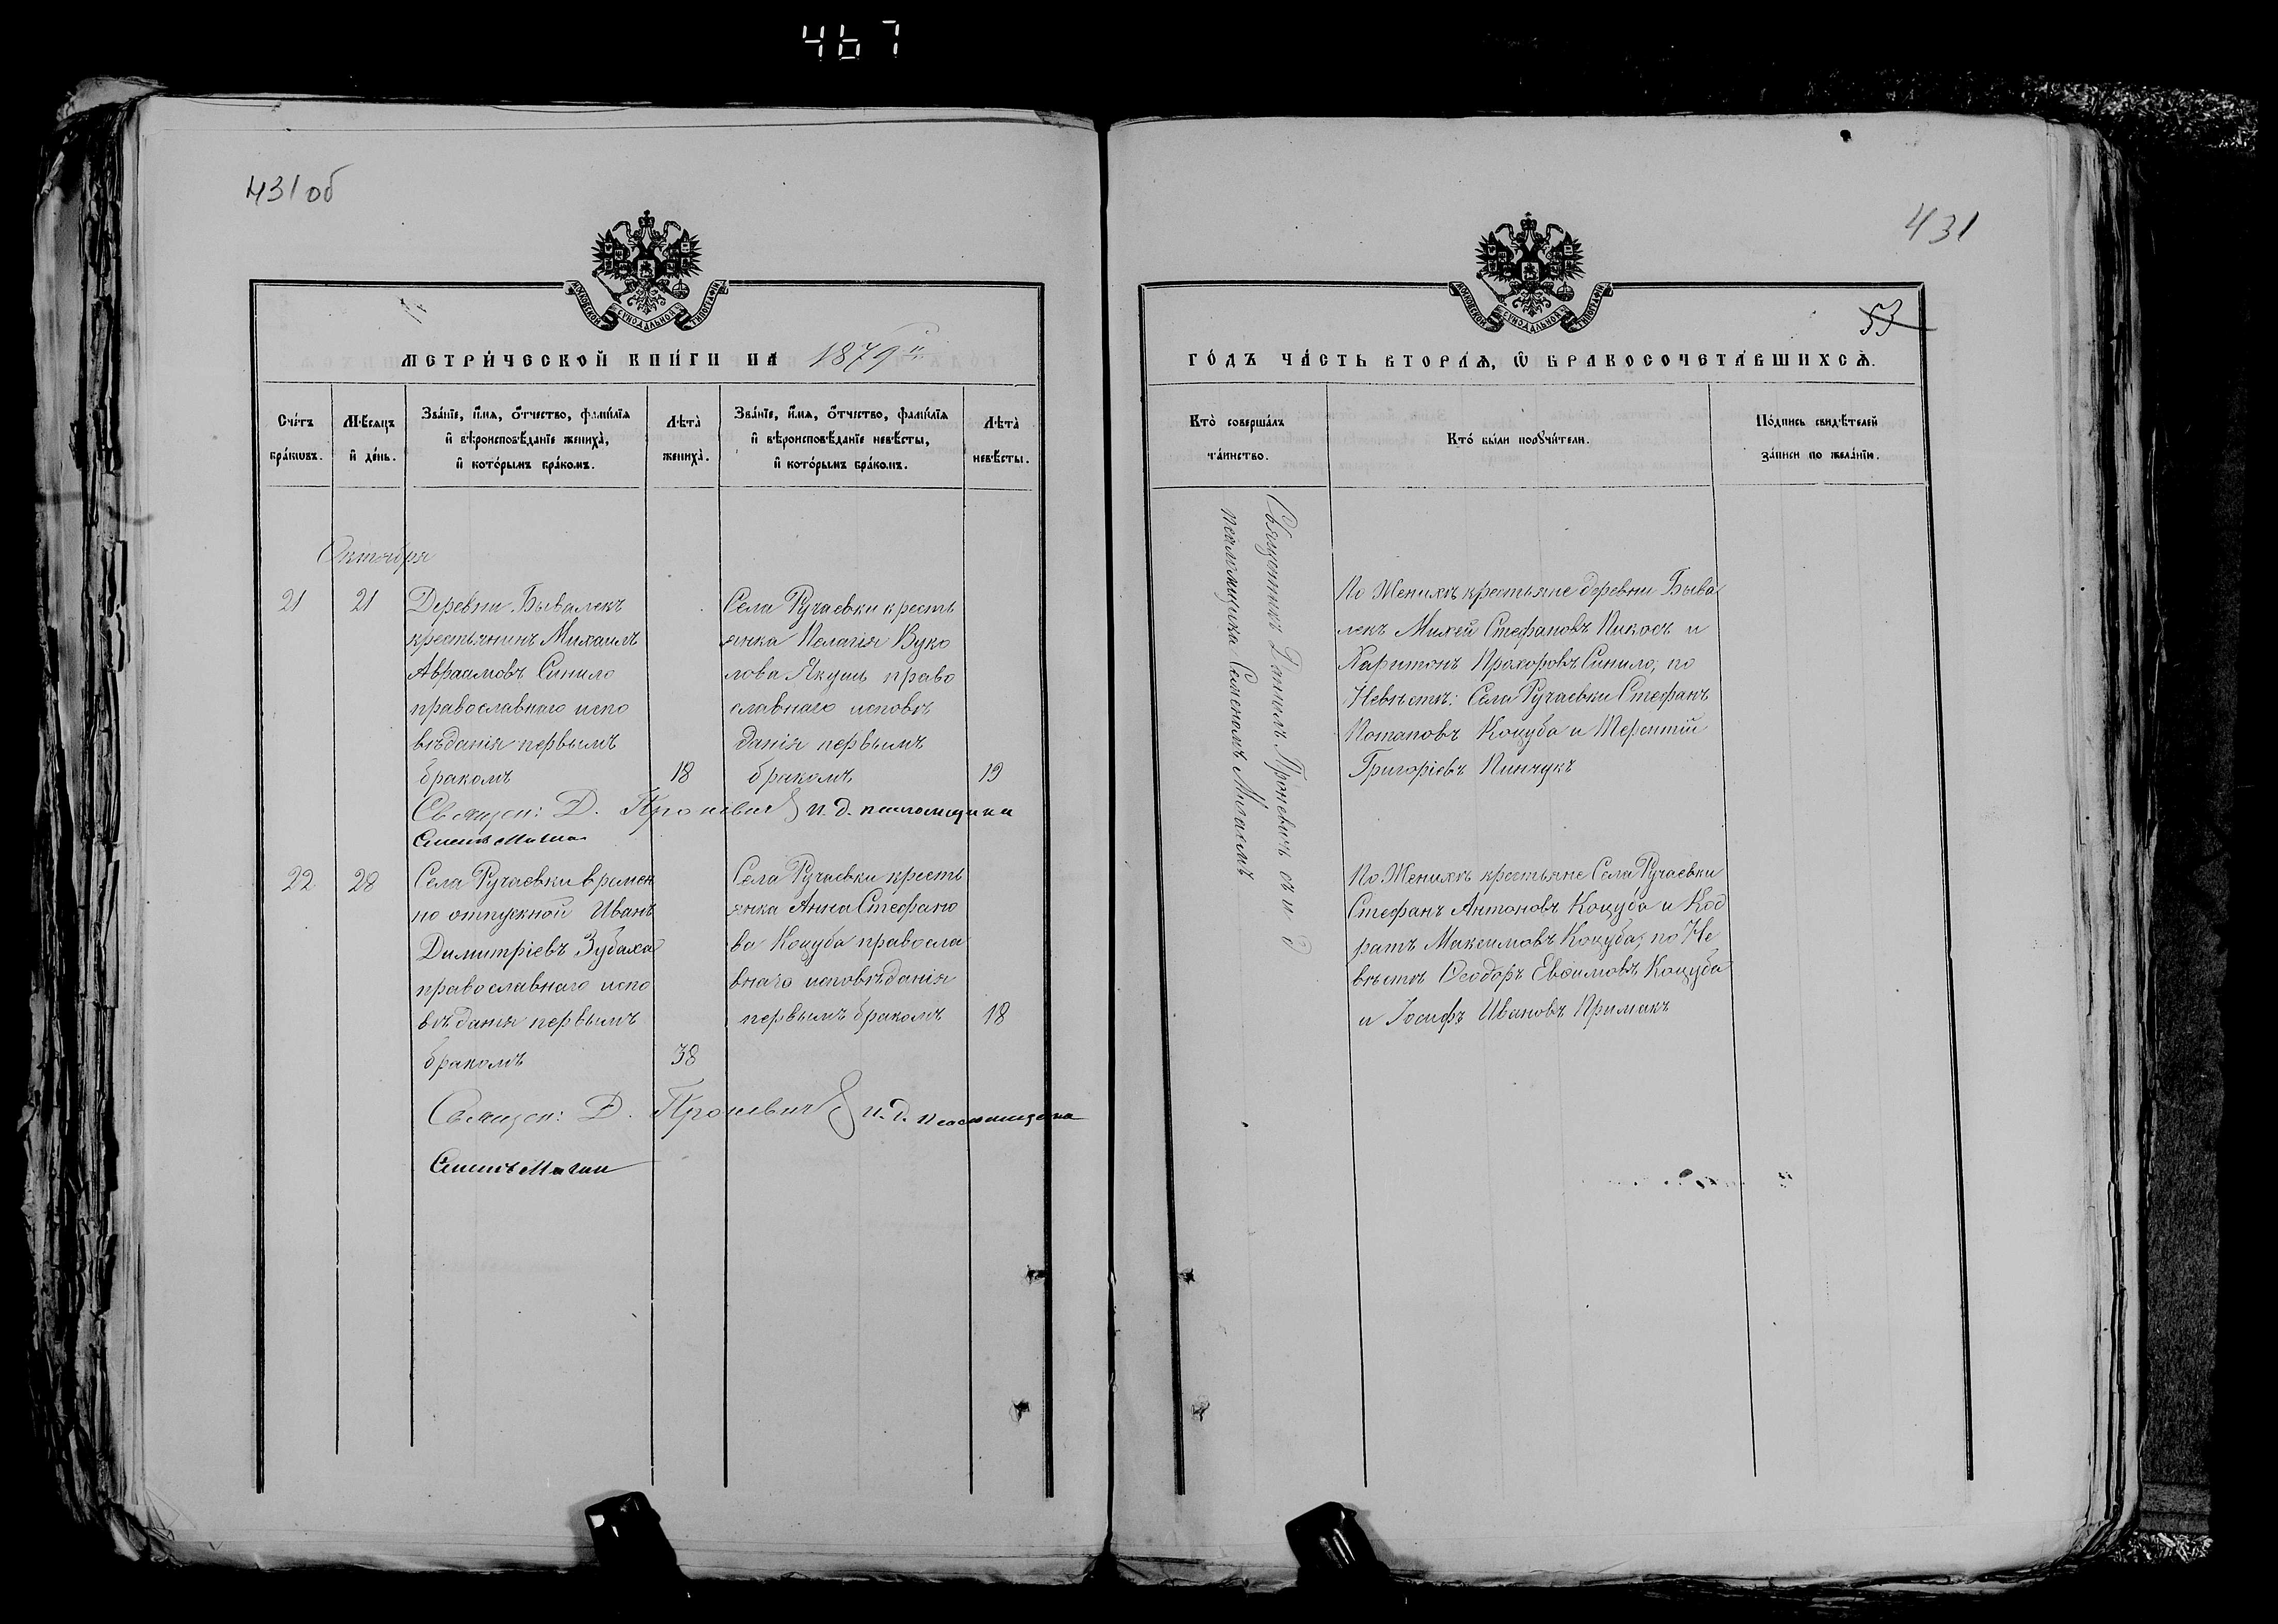 467
431 об
431
53
МОСКОВСКОЙ СѴНОДАЛЬНОЙ ТИПОГРАФІИ
МЕТРИ́ЧЕСКОЙ КНИ́ГИ НА 1879 й
Сче́тъ бра́кωвъ.
Мѣ́сяцъ и҆ де́нь.
Зва́нїе, и҆́мя, о҆́тчество, фами́лїя
и҆ вѣроисповѣ́данїе жениха̀,
и҆ кото́рымъ бра́комъ.
Лѣ́та̀ жениха̀.
Зва́нїе, и҆́мя, о҆́тчество, фами́лїя
и҆ вѣроисповѣ́данїе невѣ́сты,
и҆ кото́рымъ бра́комъ.
Лѣ́та̀ невѣ́сты.
Октября
21
21
Деревни Бывалекъ
крестьянинъ Михаилъ
Авраамовъ Синило
православнаго испо
вѣданія первымъ
бракомъ
18
Села Ручаевки кресть
янка Пелагія Вуко
лова Якушъ право
славнаго исповѣ
данія первымъ
бракомъ
19
Священ: Д. Проневичъ и. д. псаломщика
22
28
Села Ручаевки времен
но отпускной Иванъ
Димитріевъ Зубаха
православнаго испо
вѣданія первымъ
бракомъ
38
Села Ручаевки кресть
янка Анна Стефано
ва Коцуба правосла
внаго исповѣданія
первымъ бракомъ
18
Священ: Д. Проневичъ и. д. псаломщика
МОСКОВСКОЙ СѴНОДАЛЬНОЙ ТИПОГРАФІИ
ГО́ДЪ ЧА́СТЬ ВТОРА́Я, Ѡ҆ БРАКОСОЧЕТА́ВШИХСѦ.
Кто̀ соверша́лъ
та́инство.
Кто́ бы́ли порꙋчи́тели.
По́дпись свидѣ́телей
за́писи по жела́нїю.
Священникъ Даніилъ Проневичъ съ и д
псаломщика Семеномъ
По Женихѣ крестьяне деревни Быва
лекъ Михей Стефановъ Пикосъ и
Харитонъ Прохоровъ Синило, по
Невѣстѣ: Села Ручаевки Стефанъ
Потаповъ Коцуба и Терентій
Григоріевъ Пинчукъ
По Женихѣ крестьяне Села Ручаевки
Стефанъ Антоновъ Коцуба и Код
ратъ Максимовъ Коцуба; по Не
вѣстѣ Ѳеодоръ Евѳимовъ Коцуба
и Іосифъ Ивановъ Примакъ